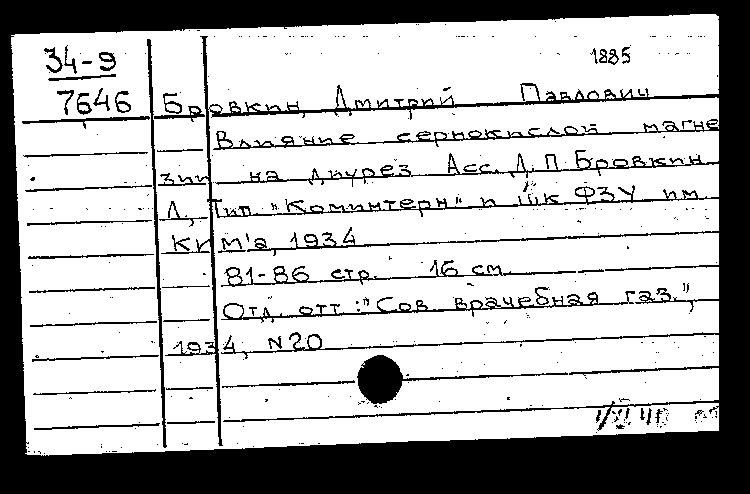 34-9
1885
7646 Бровкин, Дмитрий Павлович
Влияние сернокислой магне
зии на диурез Асс. Д. П. Бровкин
Л, Тип. "Коминтерн" и шк ФЗУ им
КИМ'а, 1934
81-86 стр. 16 см
Отд. отт.: "Сов. врачебная газ.",
1934, N20